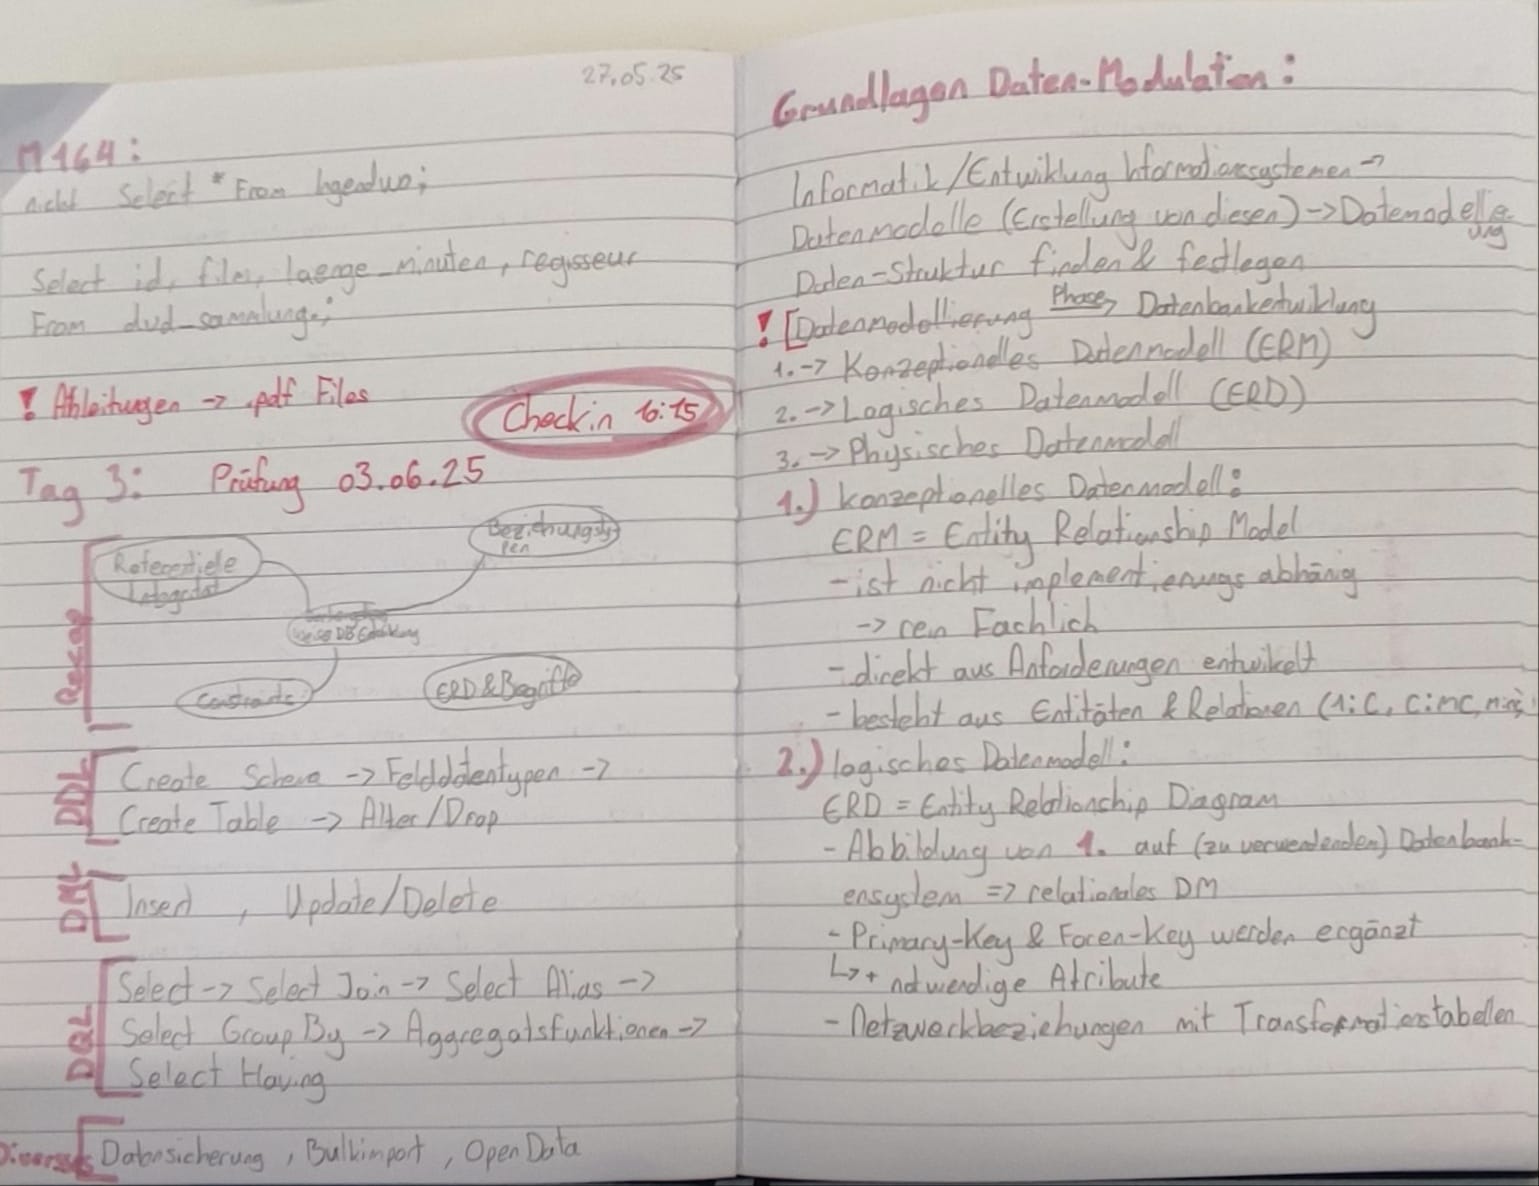 27.05.25
M164:
nicht Select * From irgendwo;
Select id, film, laenge_minuten, regisseur
From dvd_sammlung;
! Ableitungen -> .pdf Files
Check in 16:15
Tag 3: Prüfung 03.06.25
Rekap
Referentielle
Integrität
Beziehungsty
pen
Constraints
ERD & Begriffe
DDL
Create Schema -> Felddatentypen ->
Create Table -> Alter/Drop
DML
Insert , Update/Delete
DQL
Select -> Select Join -> Select Alias ->
Select Group By -> Aggregatsfunktionen ->
Select Having
Diverses
Datensicherung , Bulkimport , Open Data
Grundlagen Daten-Modulation:
Informatik/Entwicklung Informationssystemen ->
Datenmodelle (Erstellung von diesen) -> Datemodellie
ung
Daten-Struktur finden & festlegen
! [Datenmodellierung Phase> Datenbankentwiklung
1. -> Konzeptionelles Datenmodell (ERM)
2. -> Logisches Datenmodell (ERD)
3. -> Physisches Datenmodell
1.) konzeptionelles Datenmodell:
ERM = Entity Relationship Model
- ist nicht implementierungs abhänig
-> rein Fachlich
- direkt aus Anforderungen entwikelt
- besteht aus Entitäten & Relationen (1:C, C:mC,
2.) logisches Datenmodell:
ERD = Entity Relationship Diagram
- Abbildung von 1. auf (zu verwendenden) Datenbank-
ensystem => relationales DM
- Primary-Key & Foren-Key werden ergänzt
↳ + notwendige Atribute
- Netzwerkbeziehungen mit Transformationstabellen